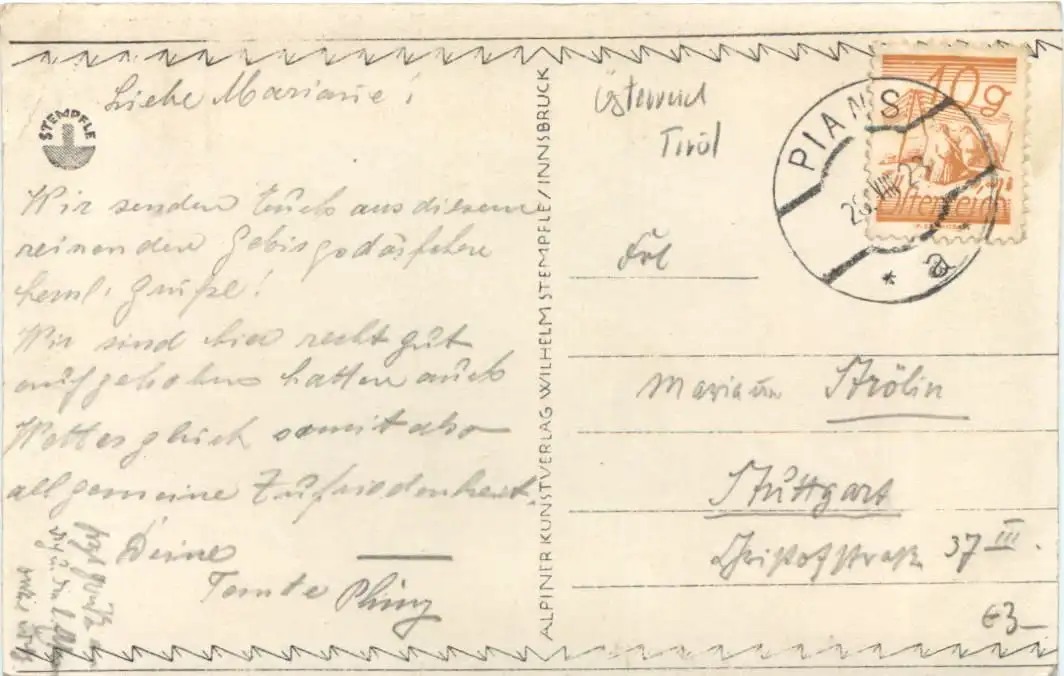 Liebe Mariane!
STEMPFLE
Wir senden Euch aus diesem
reinenden Gebirgsdörfchen
herzl. Grüße!
Wir sind hier recht gut
aufgehoben hatten auch
Wetterglück somit also
allgemeine Zufriedenheit.
Deine
Tante
ALPINER KUNSTVERLAG WILHELM STEMPFLE/INNSBRUCK
Österreich
Tirol
10 g
Österreich
PIANS
26. VII.
* a
Frl
Mariann Strölin
Stuttgart
Christofstraße 37 III.
€3-